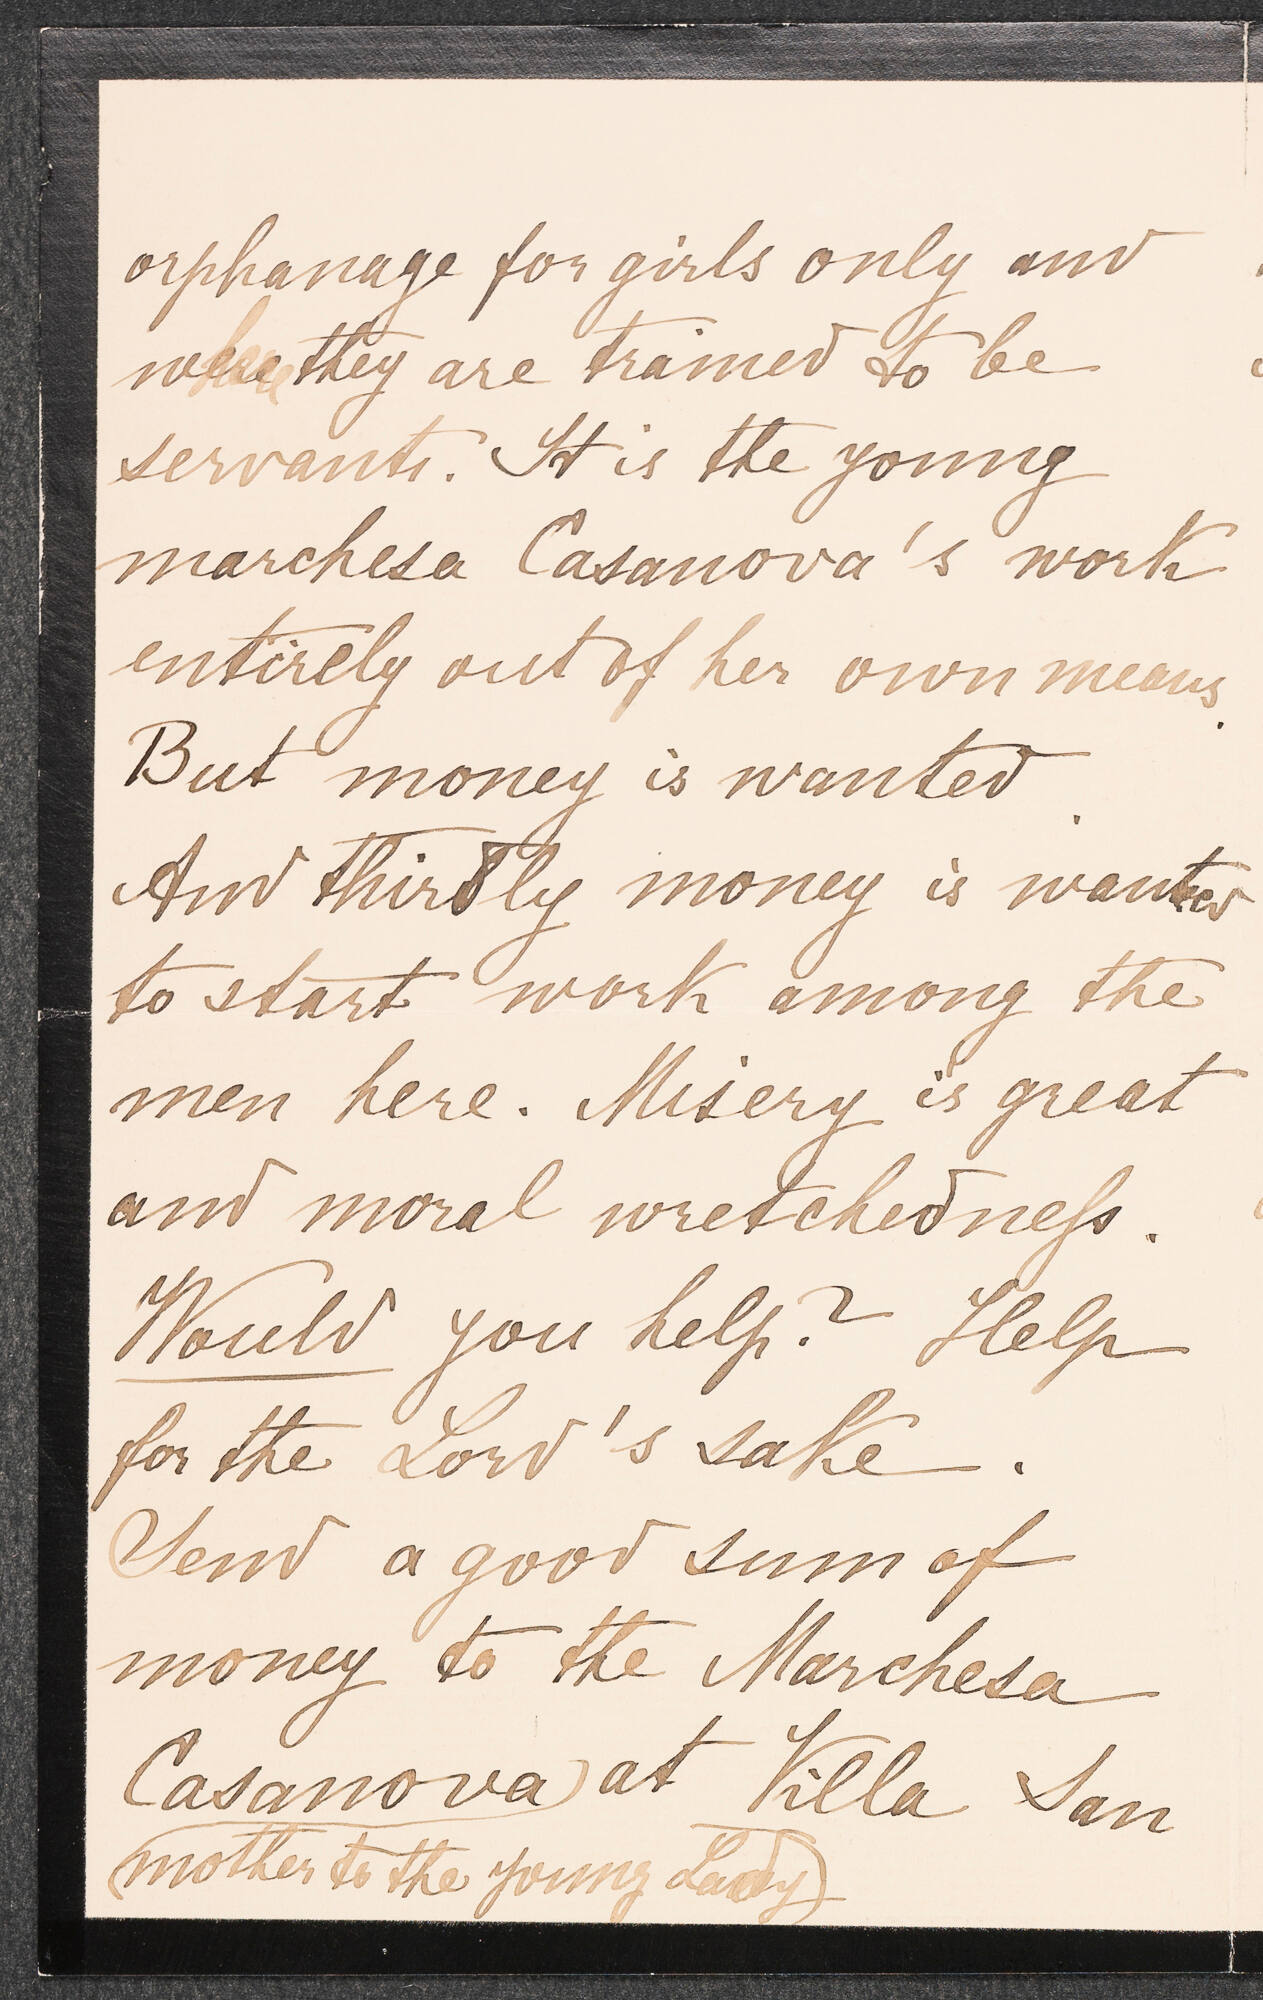 orphanage for girls only and
where they are trained to be
servants. It is the young
marchesa Casanova's work
entirely out of her own means.
But money is wanted.
And thirdly money is wanted
to start work among the
men here. Misery is great
and moral wretchedness.
Would you help? Help
for the Lord's sake.
Send a good sum of
money to the Marchesa
Casanova at Villa San
(mother to the young Lady)